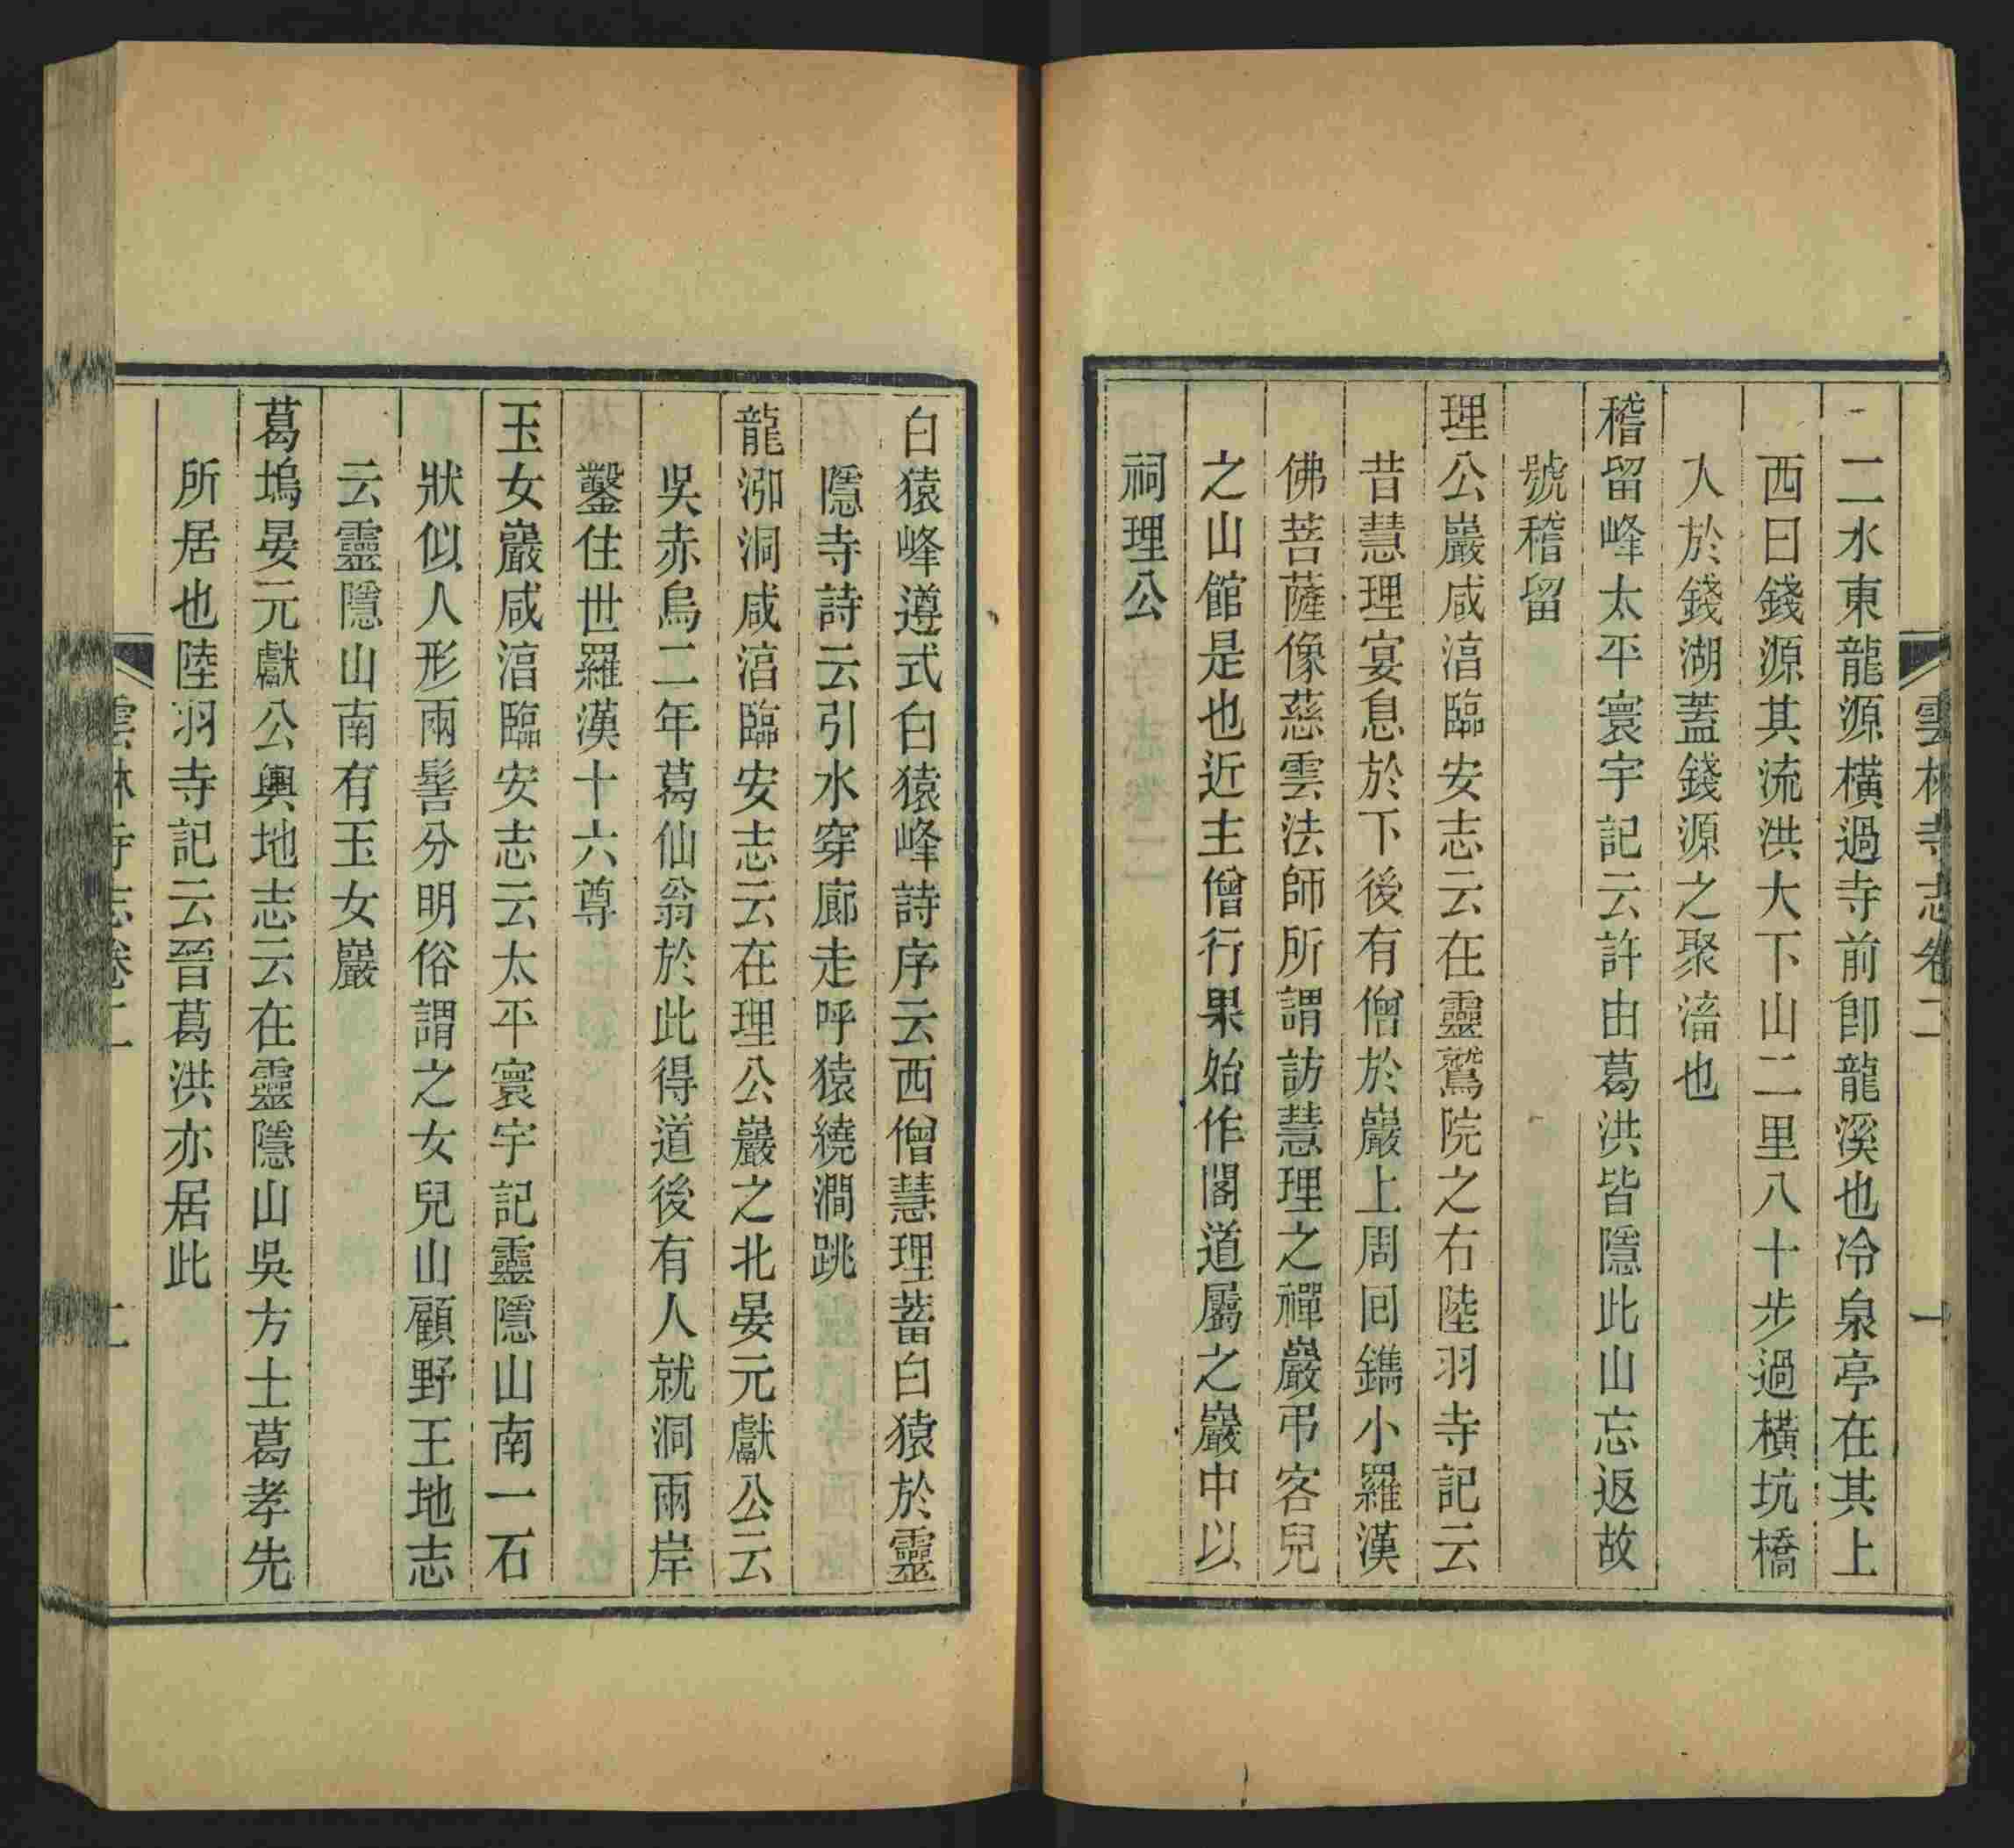 雲林寺志卷二 一
二水東龍源橫過寺前卽龍溪也冷泉亭在其上
西曰錢源其流洪大下山二里八十步過橫坑橋
人於錢湖蓋錢源之聚滀也
稽留峰太平寰宇記云許由葛洪皆隱此山忘返故
號稽留
理公巖咸湻臨安志云在靈鷲院之右陸羽寺記云
昔慧理宴息於下後有僧於巖上周回鐫小羅漢
佛菩薩像慈雲法師所謂訪慧理之禪巖弔客兒
之山館是也近主僧行果始作閣道屬之巖中以
祠理公
白猿峰遵式白猿峰詩序云西僧慧理蓄白猿於靈
隱寺詩云引水穿廊走呼猿繞澗跳
龍泖洞咸湻臨安志云在理公巖之北晏元獻公云
吳赤烏二年葛仙翁於此得道後有人就洞兩岸
鑿住世羅漢十六尊
玉女巖咸湻臨安志云太平寰宇記靈隱山南一石
狀似人形兩髻分明俗謂之女兒山顧野王地志
云靈隱山南有玉女巖
葛塢晏元獻公輿地志云在靈隱山吳方士葛孝先
所居也陸羽寺記云晉葛洪亦居此
雲林寺志卷二 二